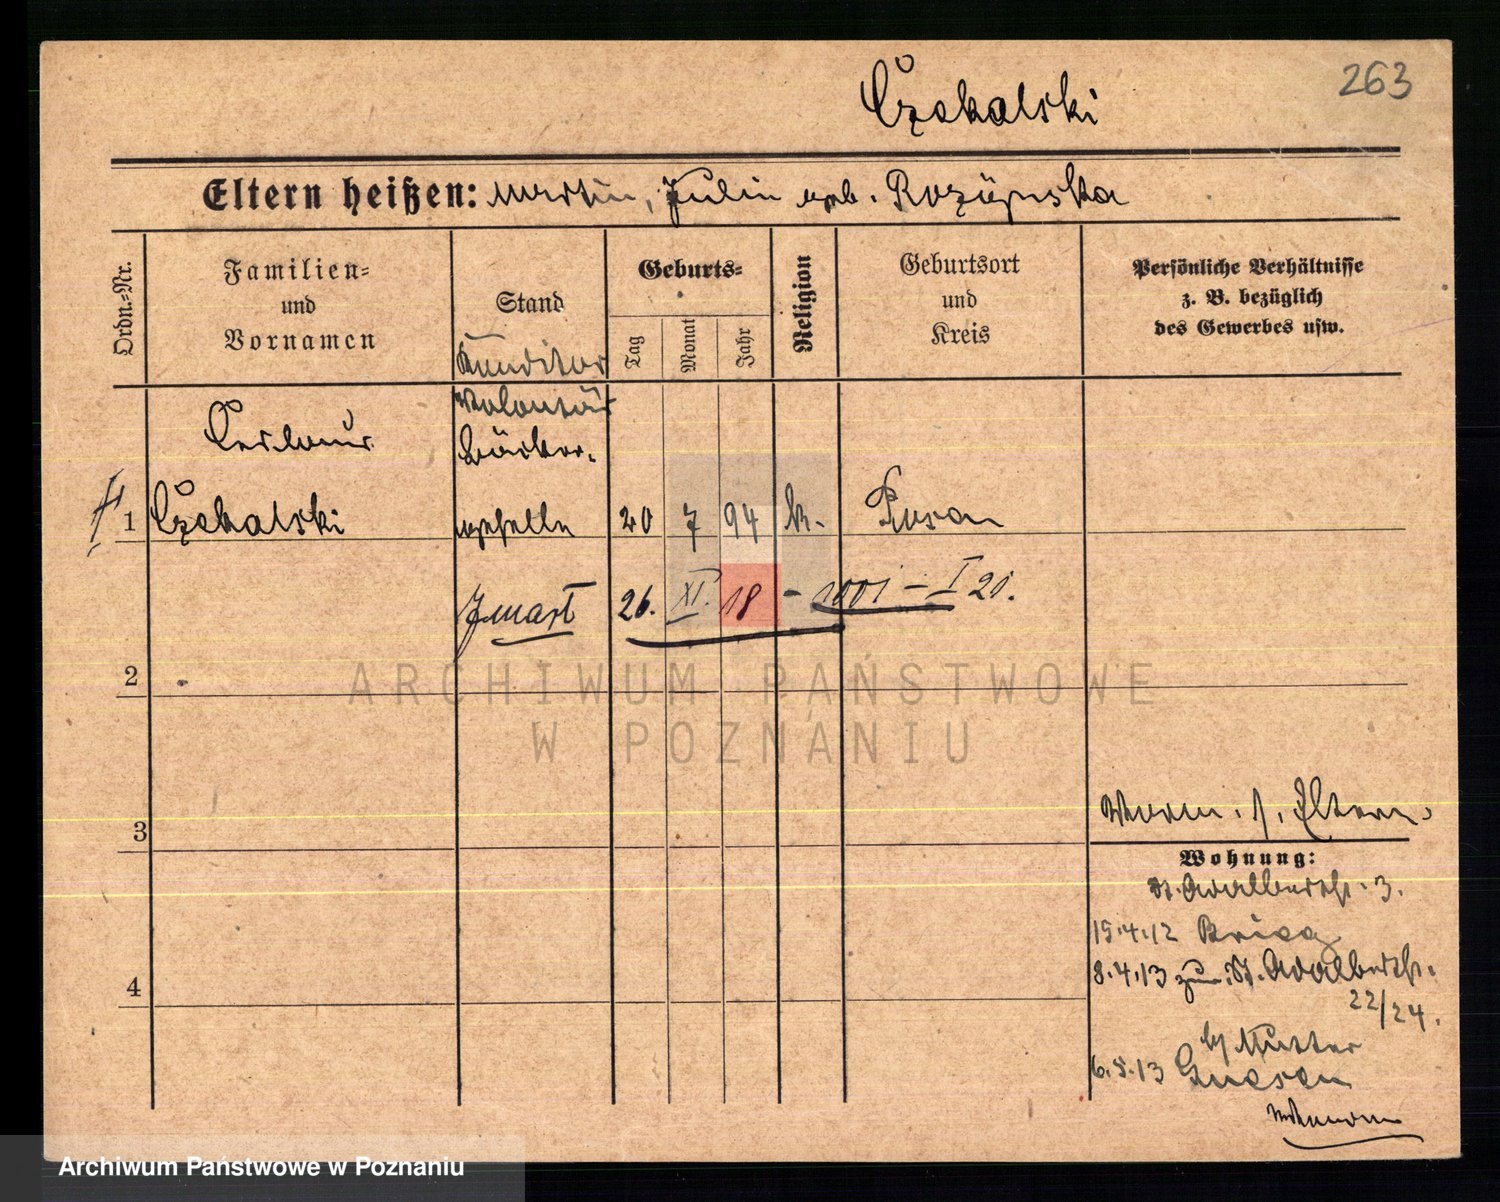 263
Czekalski
Eltern heißen: Martin, Julia geb.
Ordn.-Nr.
Familien-
und
Vornamen
Stand
Geburts-
Tag
Monat
Jahr
Religion
Geburtsort
und
Kreis
Persönliche Verhältnisse
z. B. bezüglich
des Gewerbes usw.
Konditor
Volontär
Bäcker-
1 Czekalski geselle 20 7 94 k. Posen
26. XI. 18 - 1001 - I 21.
2
ARCHIWUM PAŃSTWOWE
W POZNANIU
3
Eltern
Wohnung:
St. Adalbertstr. 3.
15.4.12 Brieg
8.4.13 zur. St. Adalbertstr.
22/24.
b/ Mutter
6.5.13 Gnesen
4
Archiwum Państwowe w Poznaniu